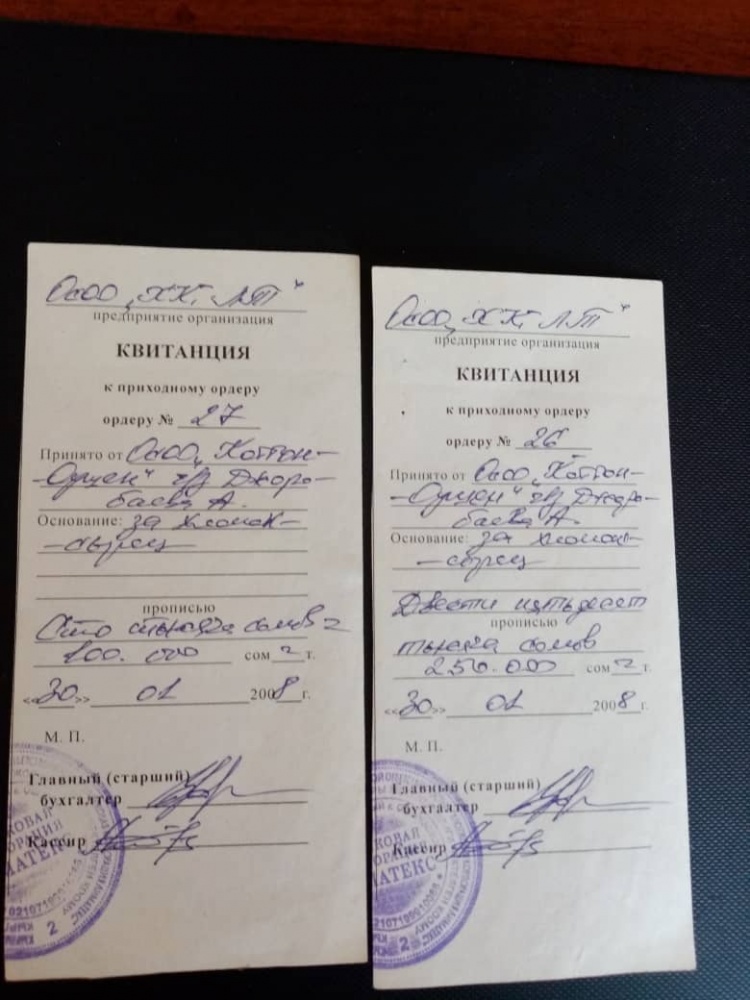 ОсОО „ХК, ЛТ"
предприятие организация
КВИТАНЦИЯ
к приходному ордеру
ордеру № 27
Принято от ОсОО „Коттон-
-Орцен" ч/з Джоро-
баева А.
Основание: за хлопок-
-сырец
прописью
Сто тысяча сомов =
100.000 сом т.
«30» 01 2008 г.
М. П.
Главный (старший)
бухгалтер
Кассир
КОВАЯ
ОРАЦИЯ
МАТЕКС
2
ОсОО „ХК, ЛТ"
предприятие организация
КВИТАНЦИЯ
к приходному ордеру
ордеру № 26
Принято от ОсОО „Коттон-
-Орцен" ч/з Джоро-
баева А.
Основание: за хлопок-
-сырец
Двести пятьдесят
прописью
тысяча сомов
250.000 сом т.
«30» 01 2008 г.
М. П.
Главный (старший)
бухгалтер
Кассир
КОВАЯ
ОРАЦИЯ
МАТЕКС
2